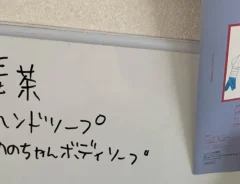 茶
ハンドソープ
のちゃんボディソープ